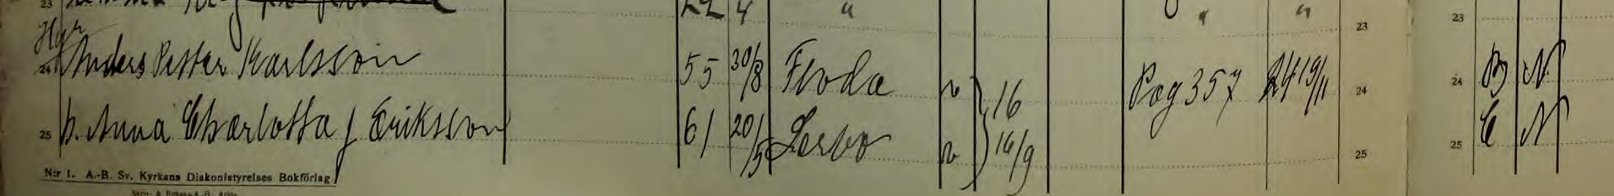 23 22 4 " " " 23 23
Hyr
24 Anders Petter Karlsson 55 30/8 Floda v 16 Pag 357 24 19/11 24 24 B N
25 h. Anna Charlotta f Eriksson 61 20/5 Lerbo v 16/9 25 25 C N
N:r 1. A.-B. Sv. Kyrkans Diakonistyrelses Bokförlag